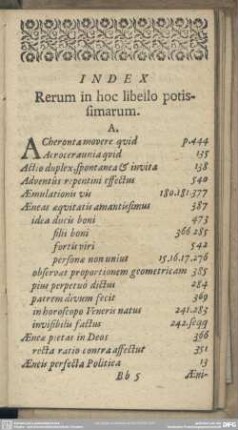 INDEX
Rerum in hoc libello potis-
simarum.
A.
ACheronta movere qvid p.444
Acroceraunia qvid 135
Actio duplex, spontanea & invita 138
Adventus repentini effectus 540
Æmulationis vis 180.181.377
Æneas æqvitatis amantissimus 387
idea ducis boni 473
filii boni 366 285
fortis viri 542
personæ non unius 15.16.17.276
observat proportionem geometricam 385
pius perpetuò dictus 284
patrem divum fecit 369
in horoscopo Veneris natus 241.283
invisibilis factus 242.seqq
Æneæ pietas in Deos 366
recta ratio contra affectus 351
Æneis perfecta Politica 13
Bb 5 Æni-